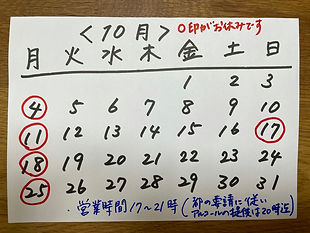 ＜10月＞ ○印がお休みです
月 火 水 木 金 土 日
1 2 3
4 5 6 7 8 9 10
11 12 13 14 15 16 17
18 19 20 21 22 23 24
25 26 27 28 29 30 31
・営業時間17〜21時（都の要請に従い
アルコールの提供は20時迄）